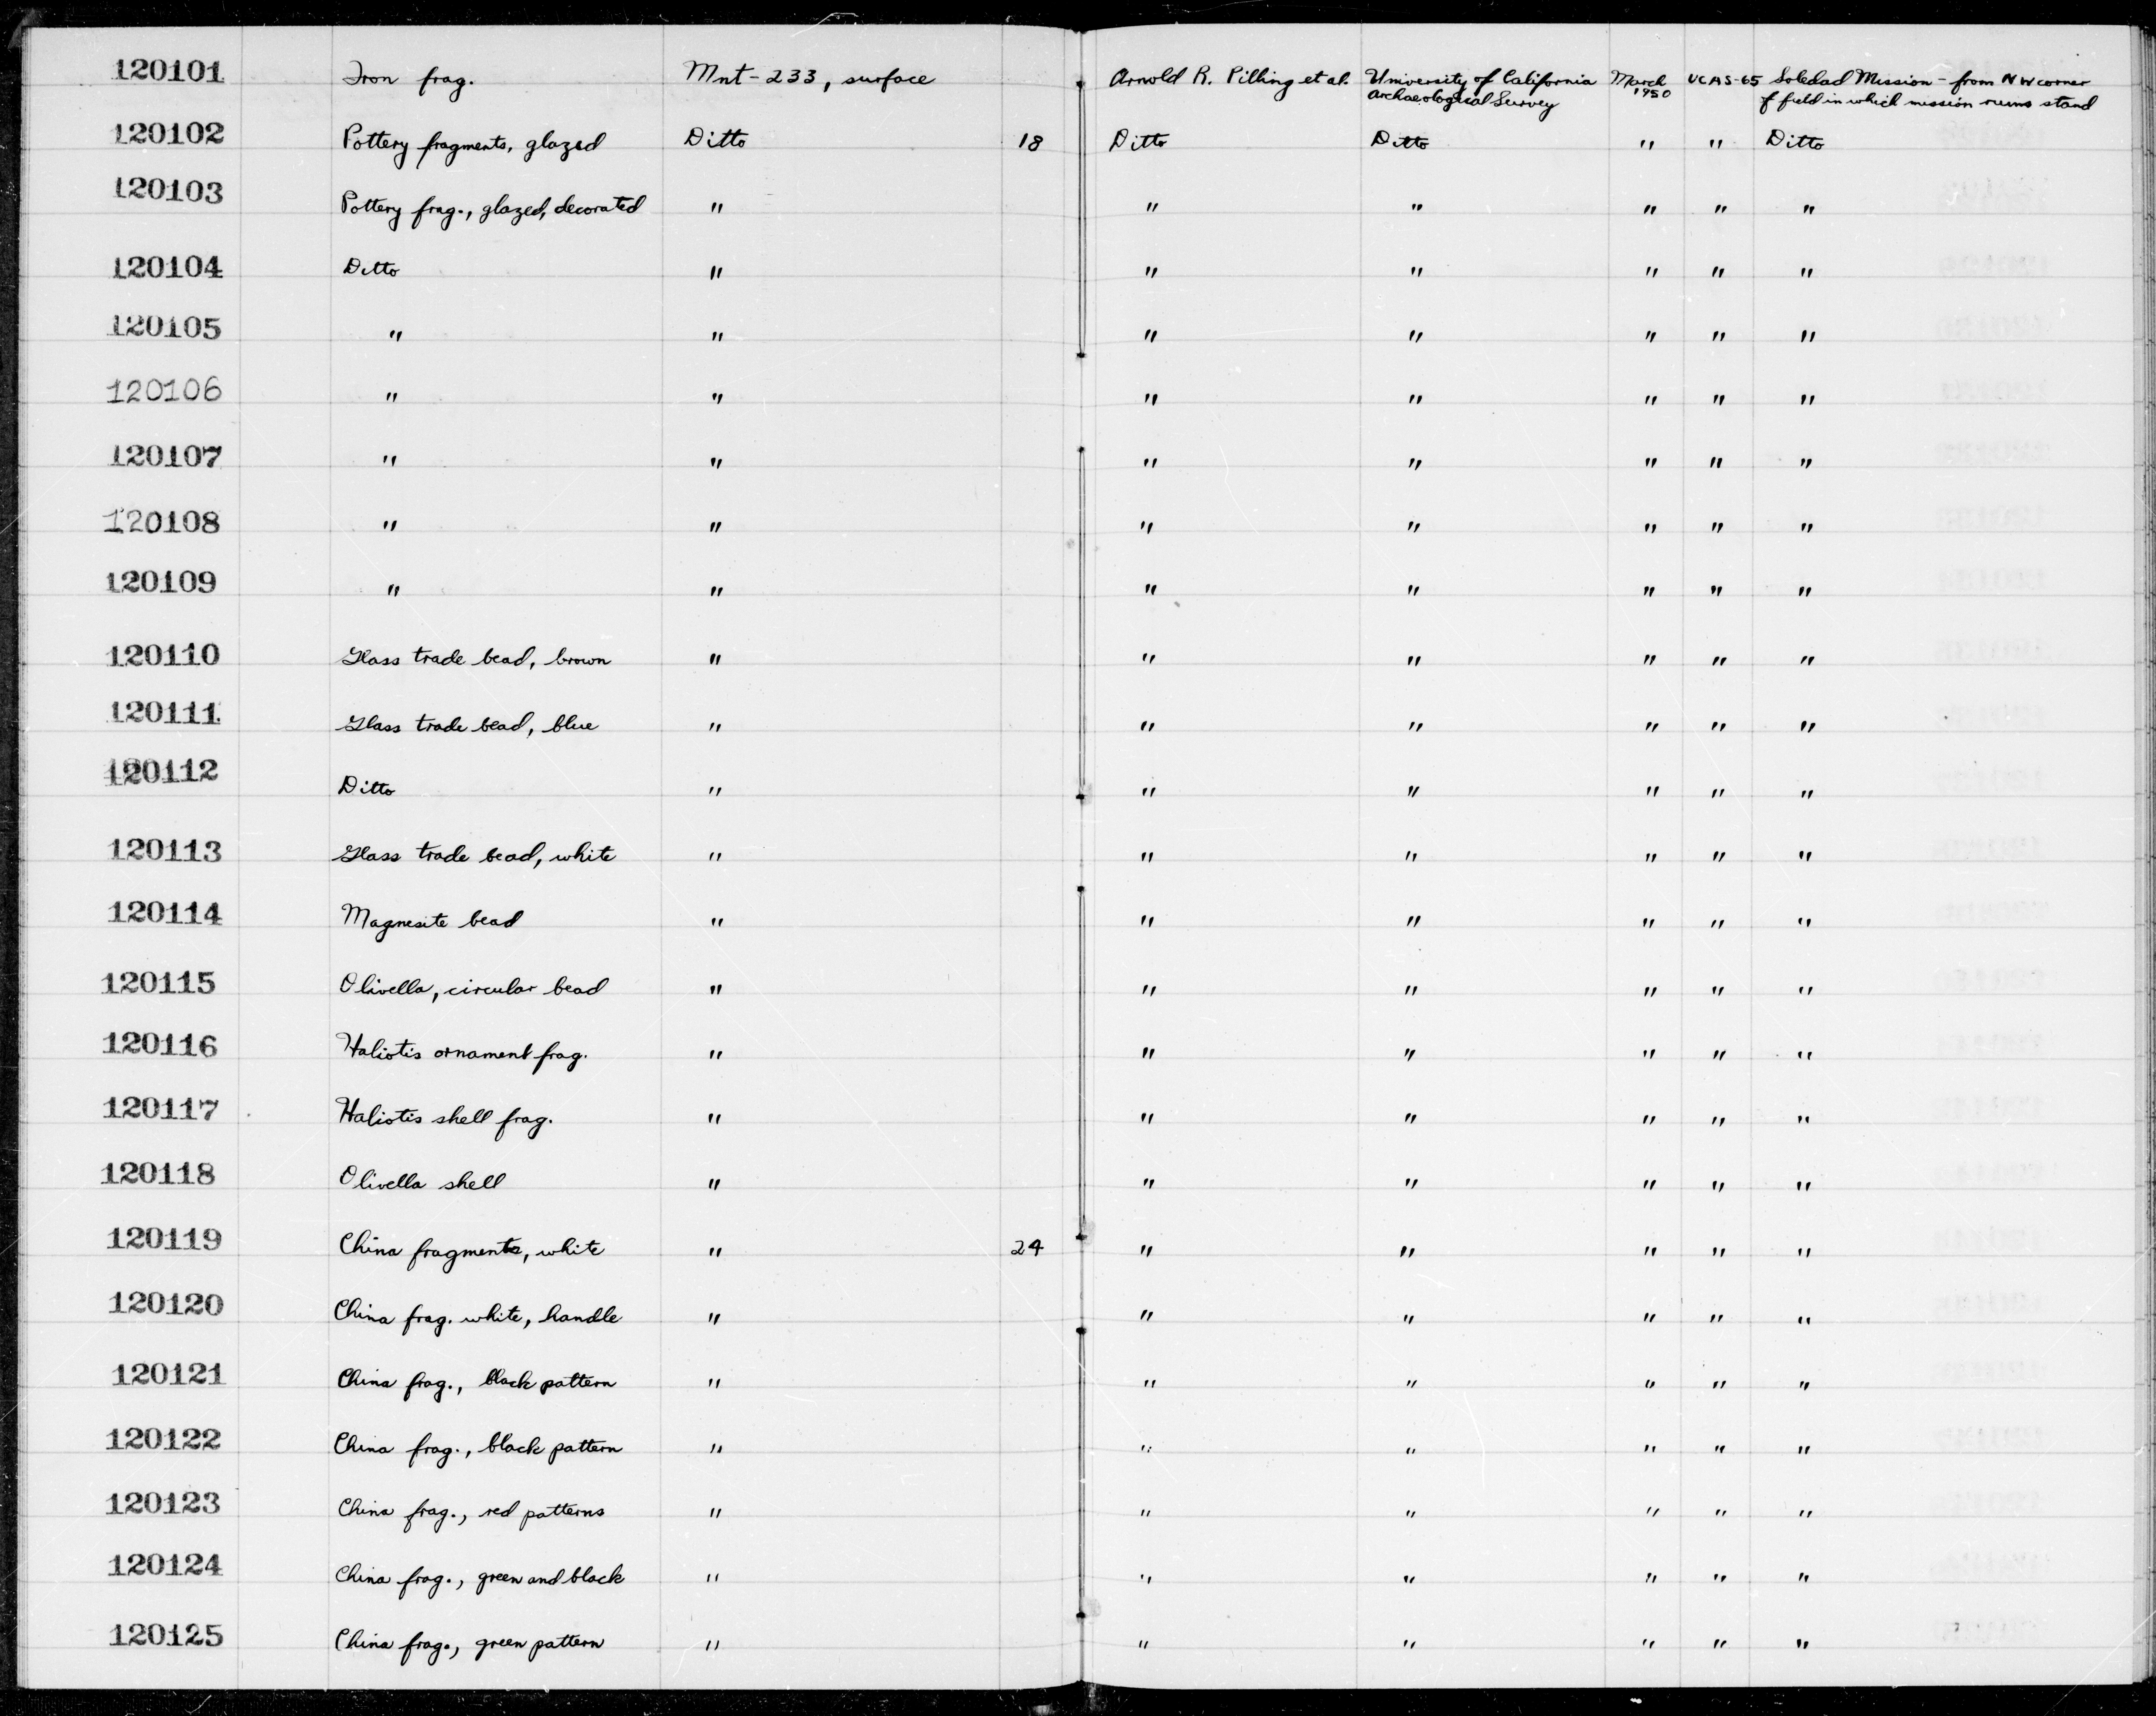 120101 Iron frag. Mnt-233, surface Arnold R. Pilling et al. University of California March UCAS-65 Soledad Mission - from NW corner
Archaeological Survey 1950 of field in which mission ruins stand
120102 Pottery fragments, glazed Ditto 18 Ditto Ditto " " Ditto
120103 Pottery frag., glazed, decorated " " " " " "
120104 Ditto " " " " " "
120105 " " " " " " "
120106 " " " " " " "
120107 " " " " " " "
120108 " " " " " " "
120109 " " " " " " "
120110 Glass trade bead, brown " " " " " "
120111 Glass trade bead, blue " " " " " "
120112 Ditto " " " " " "
120113 Glass trade bead, white " " " " " "
120114 Magnesite bead " " " " " "
120115 Olivella, circular bead " " " " " "
120116 Haliotis ornament frag. " " " " " "
120117 Haliotis shell frag. " " " " " "
120118 Olivella shell " " " " " "
120119 China fragments, white " 24 " " " " "
120120 China frag. white, handle " " " " " "
120121 China frag., black pattern " " " " " "
120122 China frag., black pattern " " " " " "
120123 China frag., red patterns " " " " " "
120124 China frag., green and black " " " " " "
120125 China frag., green pattern " " " " " "